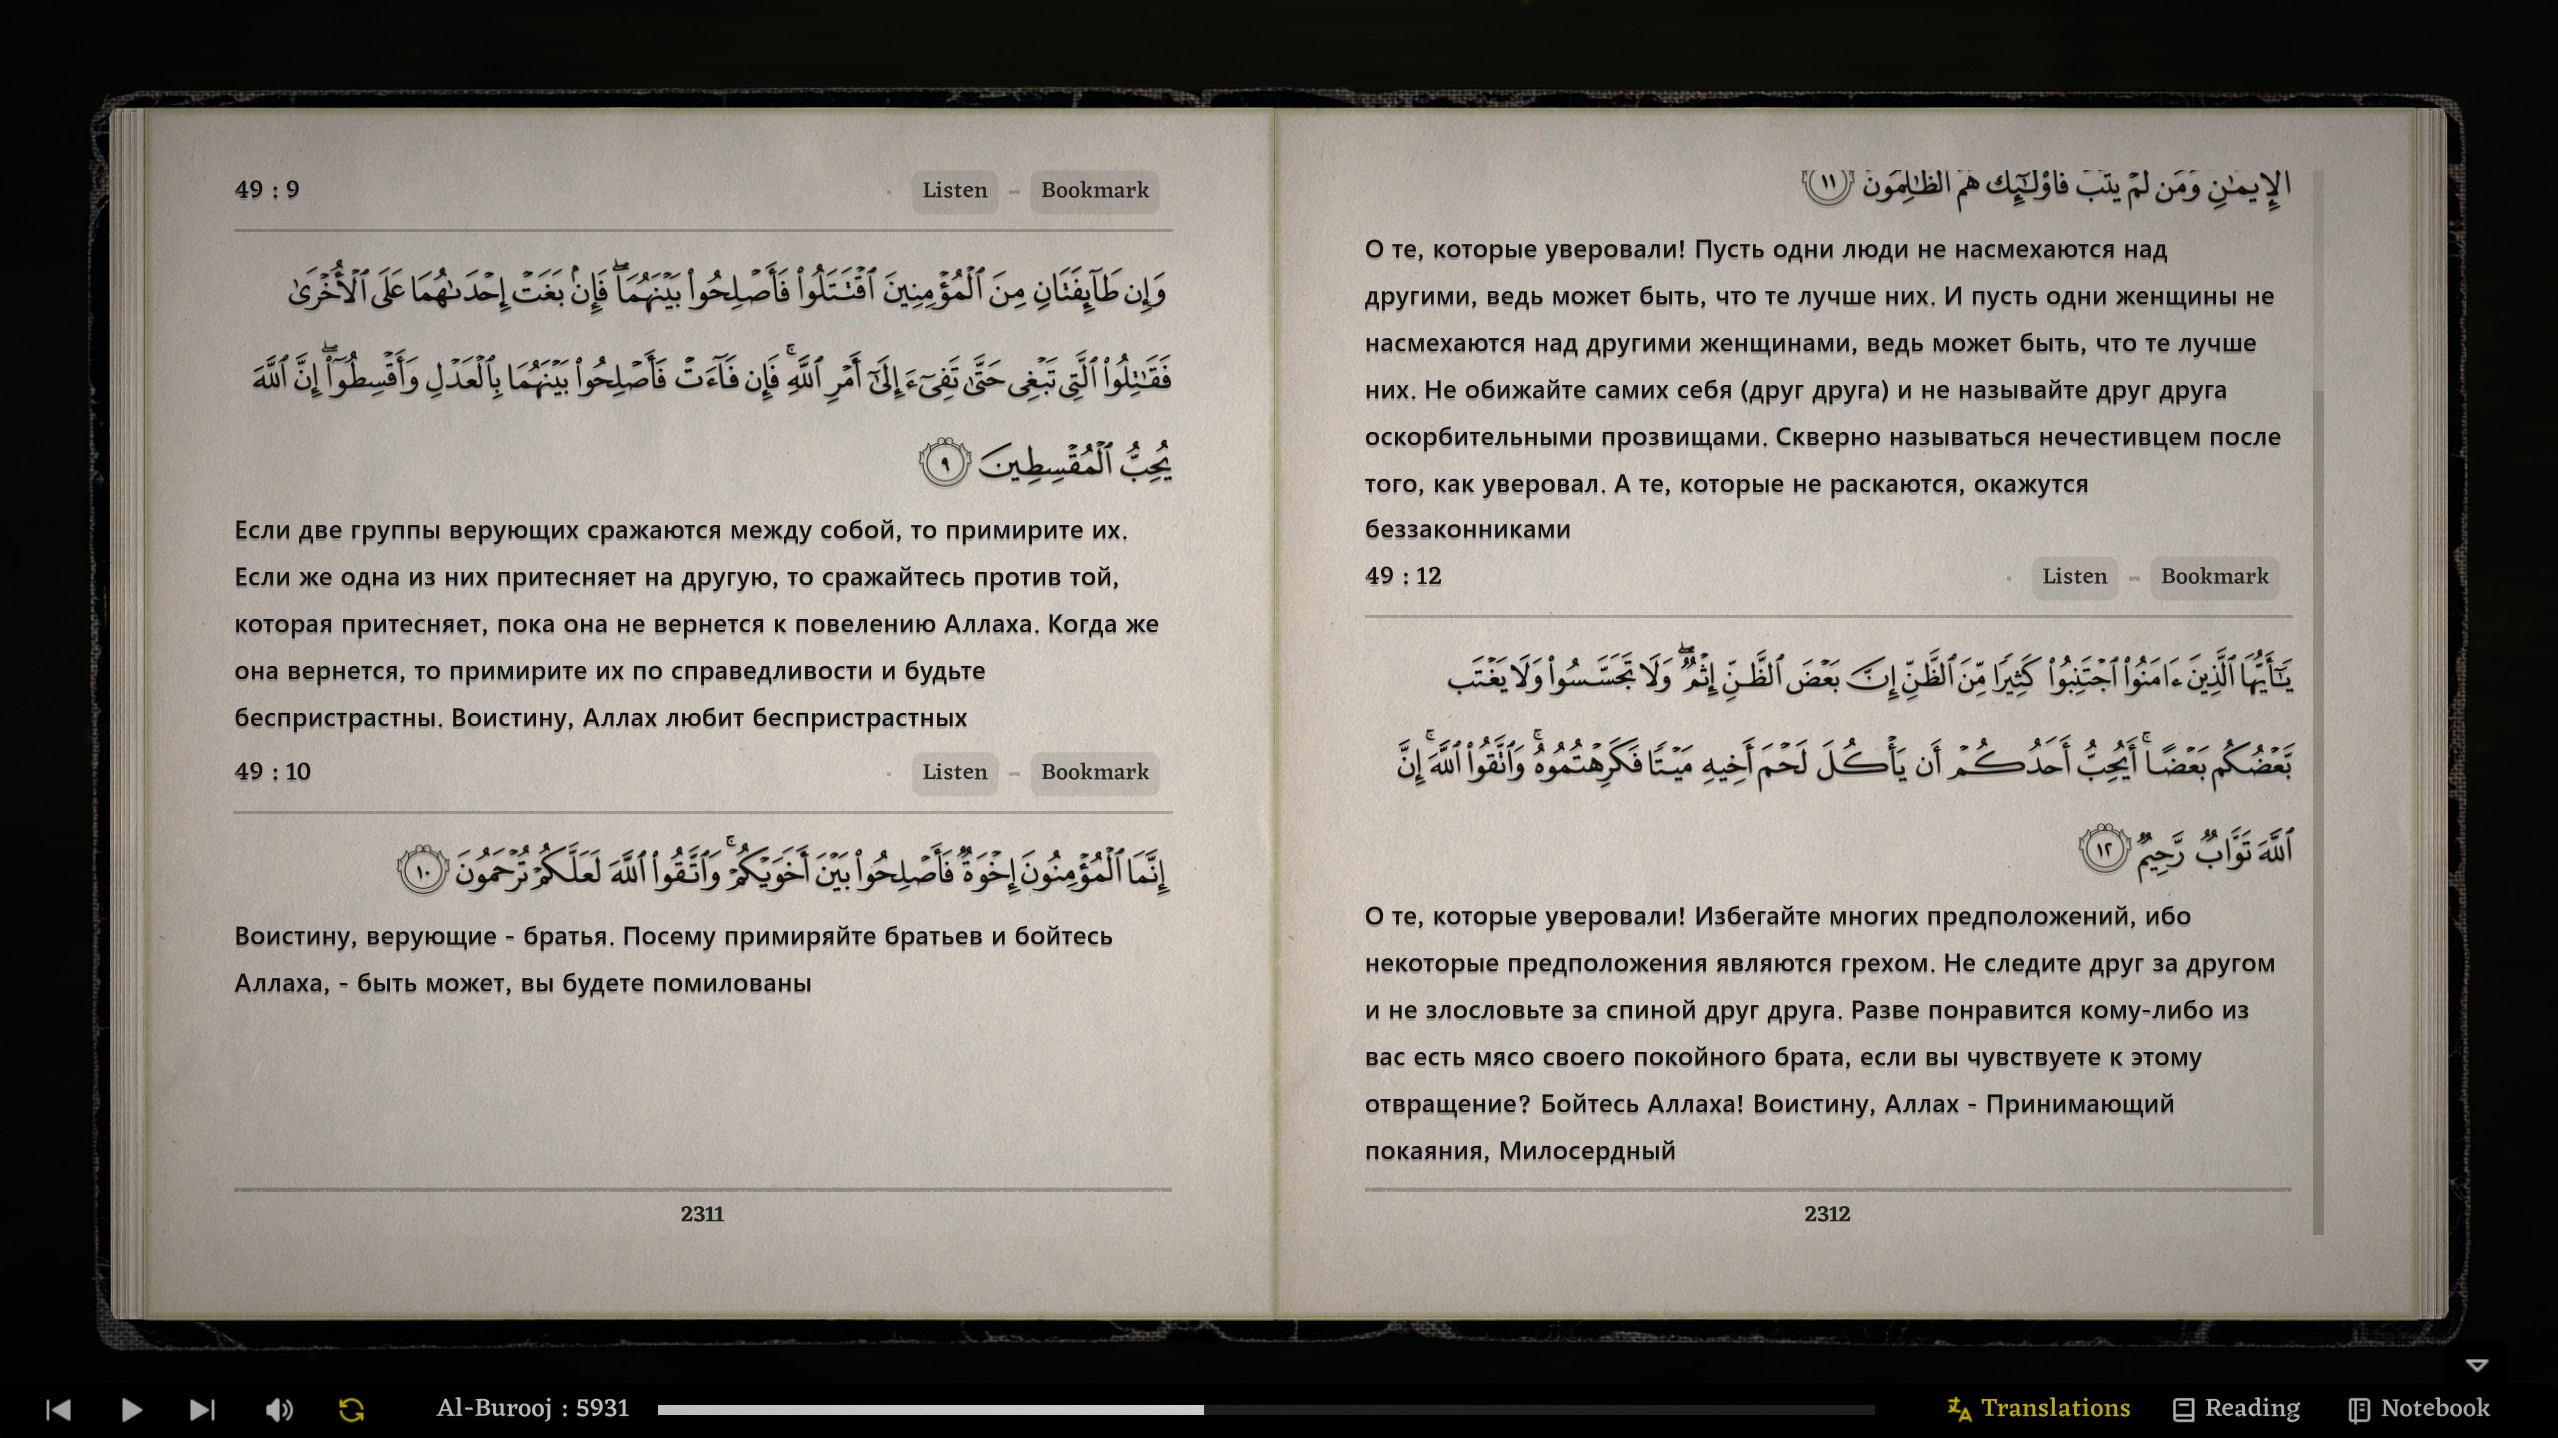 49 : 9
Listen - Bookmark
وَإِن طَآئِفَتَانِ مِنَ ٱلْمُؤْمِنِينَ ٱقْتَتَلُوا۟ فَأَصْلِحُوا۟ بَيْنَهُمَا ۖ فَإِنۢ بَغَتْ إِحْدَىٰهُمَا عَلَى ٱلْأُخْرَىٰ
فَقَـٰتِلُوا۟ ٱلَّتِى تَبْغِى حَتَّىٰ تَفِىٓءَ إِلَىٰٓ أَمْرِ ٱللَّهِ ۚ فَإِن فَآءَتْ فَأَصْلِحُوا۟ بَيْنَهُمَا بِٱلْعَدْلِ وَأَقْسِطُوٓا۟ ۖ إِنَّ ٱللَّهَ
يُحِبُّ ٱلْمُقْسِطِينَ ٩
Если две группы верующих сражаются между собой, то примирите их.
Если же одна из них притесняет на другую, то сражайтесь против той,
которая притесняет, пока она не вернется к повелению Аллаха. Когда же
она вернется, то примирите их по справедливости и будьте
беспристрастны. Воистину, Аллах любит беспристрастных
49 : 10
Listen - Bookmark
إِنَّمَا ٱلْمُؤْمِنُونَ إِخْوَةٌ فَأَصْلِحُوا۟ بَيْنَ أَخَوَيْكُمْ ۚ وَٱتَّقُوا۟ ٱللَّهَ لَعَلَّكُمْ تُرْحَمُونَ ١٠
Воистину, верующие - братья. Посему примиряйте братьев и бойтесь
Аллаха, - быть может, вы будете помилованы
2311
ٱلْإِيمَـٰنِ وَمَن لَّمْ يَتُبْ فَأُو۟لَـٰٓئِكَ هُمُ ٱلظَّـٰلِمُونَ ١١
О те, которые уверовали! Пусть одни люди не насмехаются над
другими, ведь может быть, что те лучше них. И пусть одни женщины не
насмехаются над другими женщинами, ведь может быть, что те лучше
них. Не обижайте самих себя (друг друга) и не называйте друг друга
оскорбительными прозвищами. Скверно называться нечестивцем после
того, как уверовал. А те, которые не раскаются, окажутся
беззаконниками
49 : 12
Listen - Bookmark
يَـٰٓأَيُّهَا ٱلَّذِينَ ءَامَنُوا۟ ٱجْتَنِبُوا۟ كَثِيرًا مِّنَ ٱلظَّنِّ إِنَّ بَعْضَ ٱلظَّنِّ إِثْمٌ ۖ وَلَا تَجَسَّسُوا۟ وَلَا يَغْتَب
بَّعْضُكُم بَعْضًا ۚ أَيُحِبُّ أَحَدُكُمْ أَن يَأْكُلَ لَحْمَ أَخِيهِ مَيْتًا فَكَرِهْتُمُوهُ ۚ وَٱتَّقُوا۟ ٱللَّهَ ۚ إِنَّ
ٱللَّهَ تَوَّابٌ رَّحِيمٌ ١٢
О те, которые уверовали! Избегайте многих предположений, ибо
некоторые предположения являются грехом. Не следите друг за другом
и не злословьте за спиной друг друга. Разве понравится кому-либо из
вас есть мясо своего покойного брата, если вы чувствуете к этому
отвращение? Бойтесь Аллаха! Воистину, Аллах - Принимающий
покаяния, Милосердный
2312
Al-Burooj : 5931
Translations
Reading
Notebook